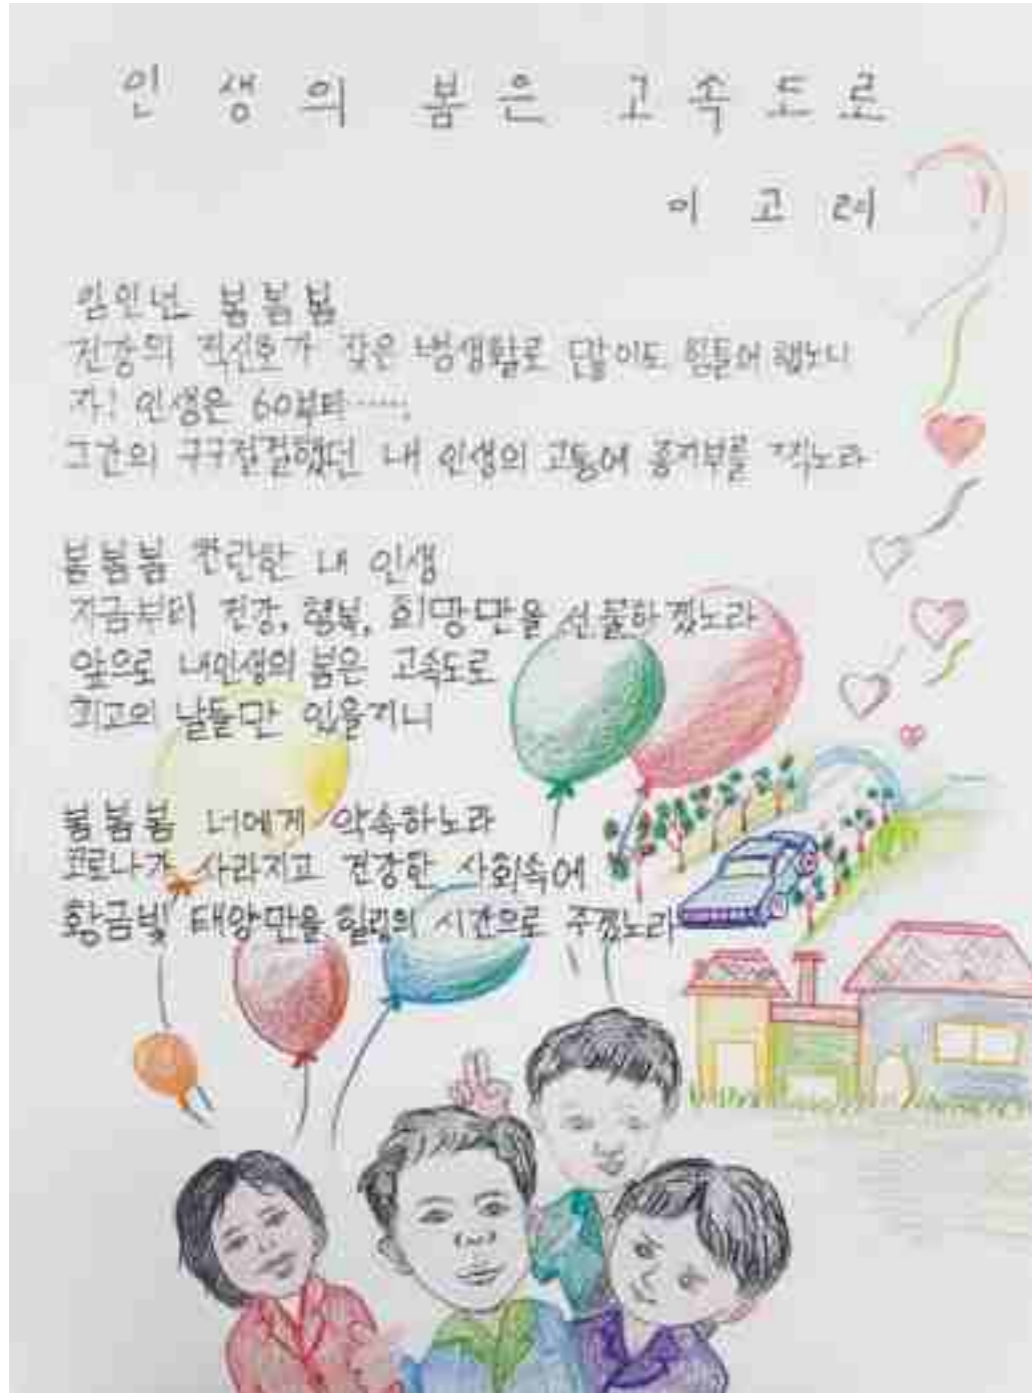 인생의 봄은 고속도로
이고레
임인년 봄봄봄
건강의 적신호가 잦은 병생활로 단말이도 힘들어 했노니
자! 인생은 60부터......
그간의 구구절절했던 내 인생의 고통에 종지부를 찍노라
봄봄봄 찬란한 내 인생
지금부터 건강, 행복, 희망만을 선물하겠노라
앞으로 내인생의 봄은 고속도로
최고의 날들만 있을지니
봄봄봄 너에게 약속하노라
코로나가 사라지고 건강한 사회속에
황금빛 태양만을 힐링의 시간으로 주겠노라